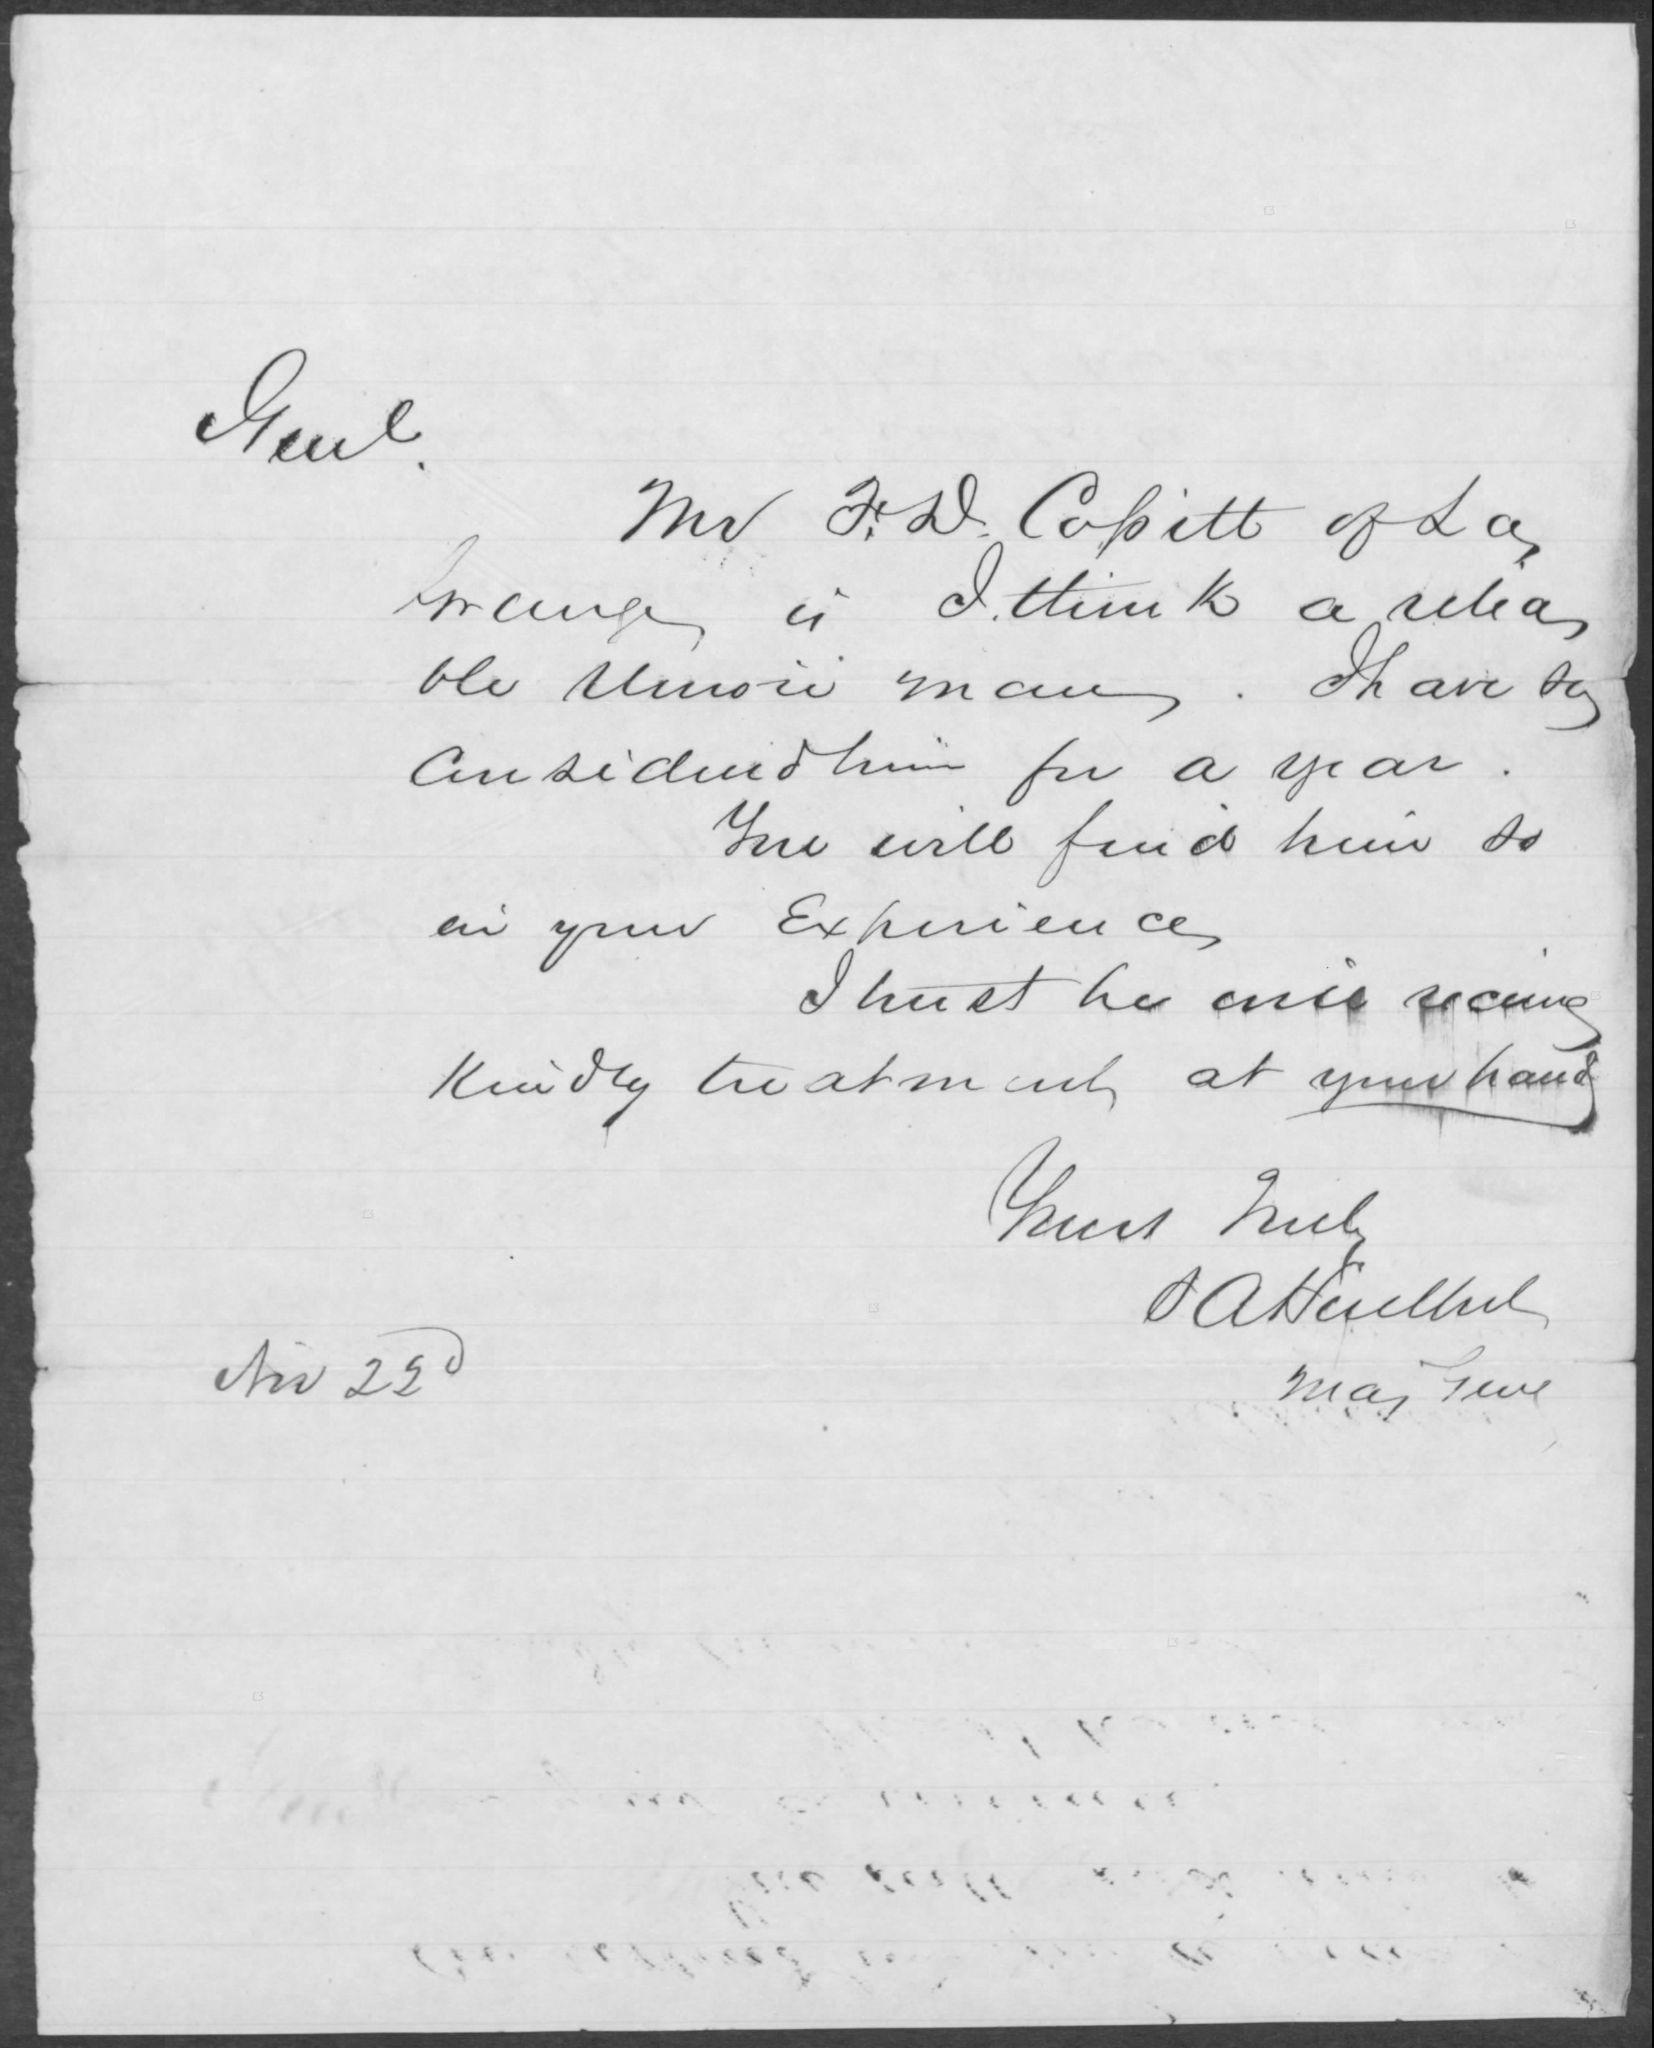 Genl.
Mr F. D. Cossitt of La
Grange is I think a relia
ble Union man. I have so
considered him for a year.
You will find him so
in your Experience
I trust he will receive
kindly treatment at your hands
Yours Truly
S A Hurlbut
Maj Genl
Nov 22d